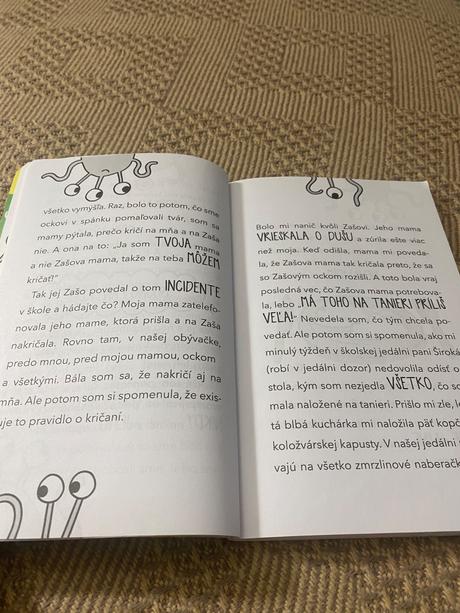 všetko vymýšľa. Raz, bolo to potom, čo sme
ockovi v spánku pomaľovali tvár, som sa
mamy pýtala, prečo kričí na mňa a na Zaša
nie. A ona na to: „Ja som TVOJA mama
a nie Zašova mama, takže na teba MÔŽEM
kričať!“
Tak jej Zašo povedal o tom INCIDENTE
v škole a hádajte čo? Moja mama zatelefo-
novala jeho mame, ktorá prišla a na Zaša
nakričala. Rovno tam, v našej obývačke,
predo mnou, pred mojou mamou, ockom
a všetkými. Bála som sa, že nakričí aj na
mňa. Ale potom som si spomenula, že exis-
uje to pravidlo o kričaní.
Bolo mi nanič kvôli Zašovi. Jeho mama
VRIESKALA O DUŠU a zúrila ešte viac
než moja. Keď odišla, mama mi poveda-
la, že Zašova mama tak kričala preto, že sa
so Zašovým ockom rozišli. A toto bola vraj
posledná vec, čo Zašova mama potrebova-
la, lebo „MÁ TOHO NA TANIERI PRÍLIŠ
VEĽA!“ Nevedela som, čo tým chcela po-
vedať. Ale potom som si spomenula, ako mi
minulý týždeň v školskej jedálni pani Široká
(robí v jedálni dozor) nedovolila odísť o
stola, kým som nezjedla VŠETKO, čo so
mala naložené na tanieri. Prišlo mi zle, l
tá blbá kuchárka mi naložila päť kopč
koložvárskej kapusty. V našej jedálni
vajú na všetko zmrzlinové naberačk